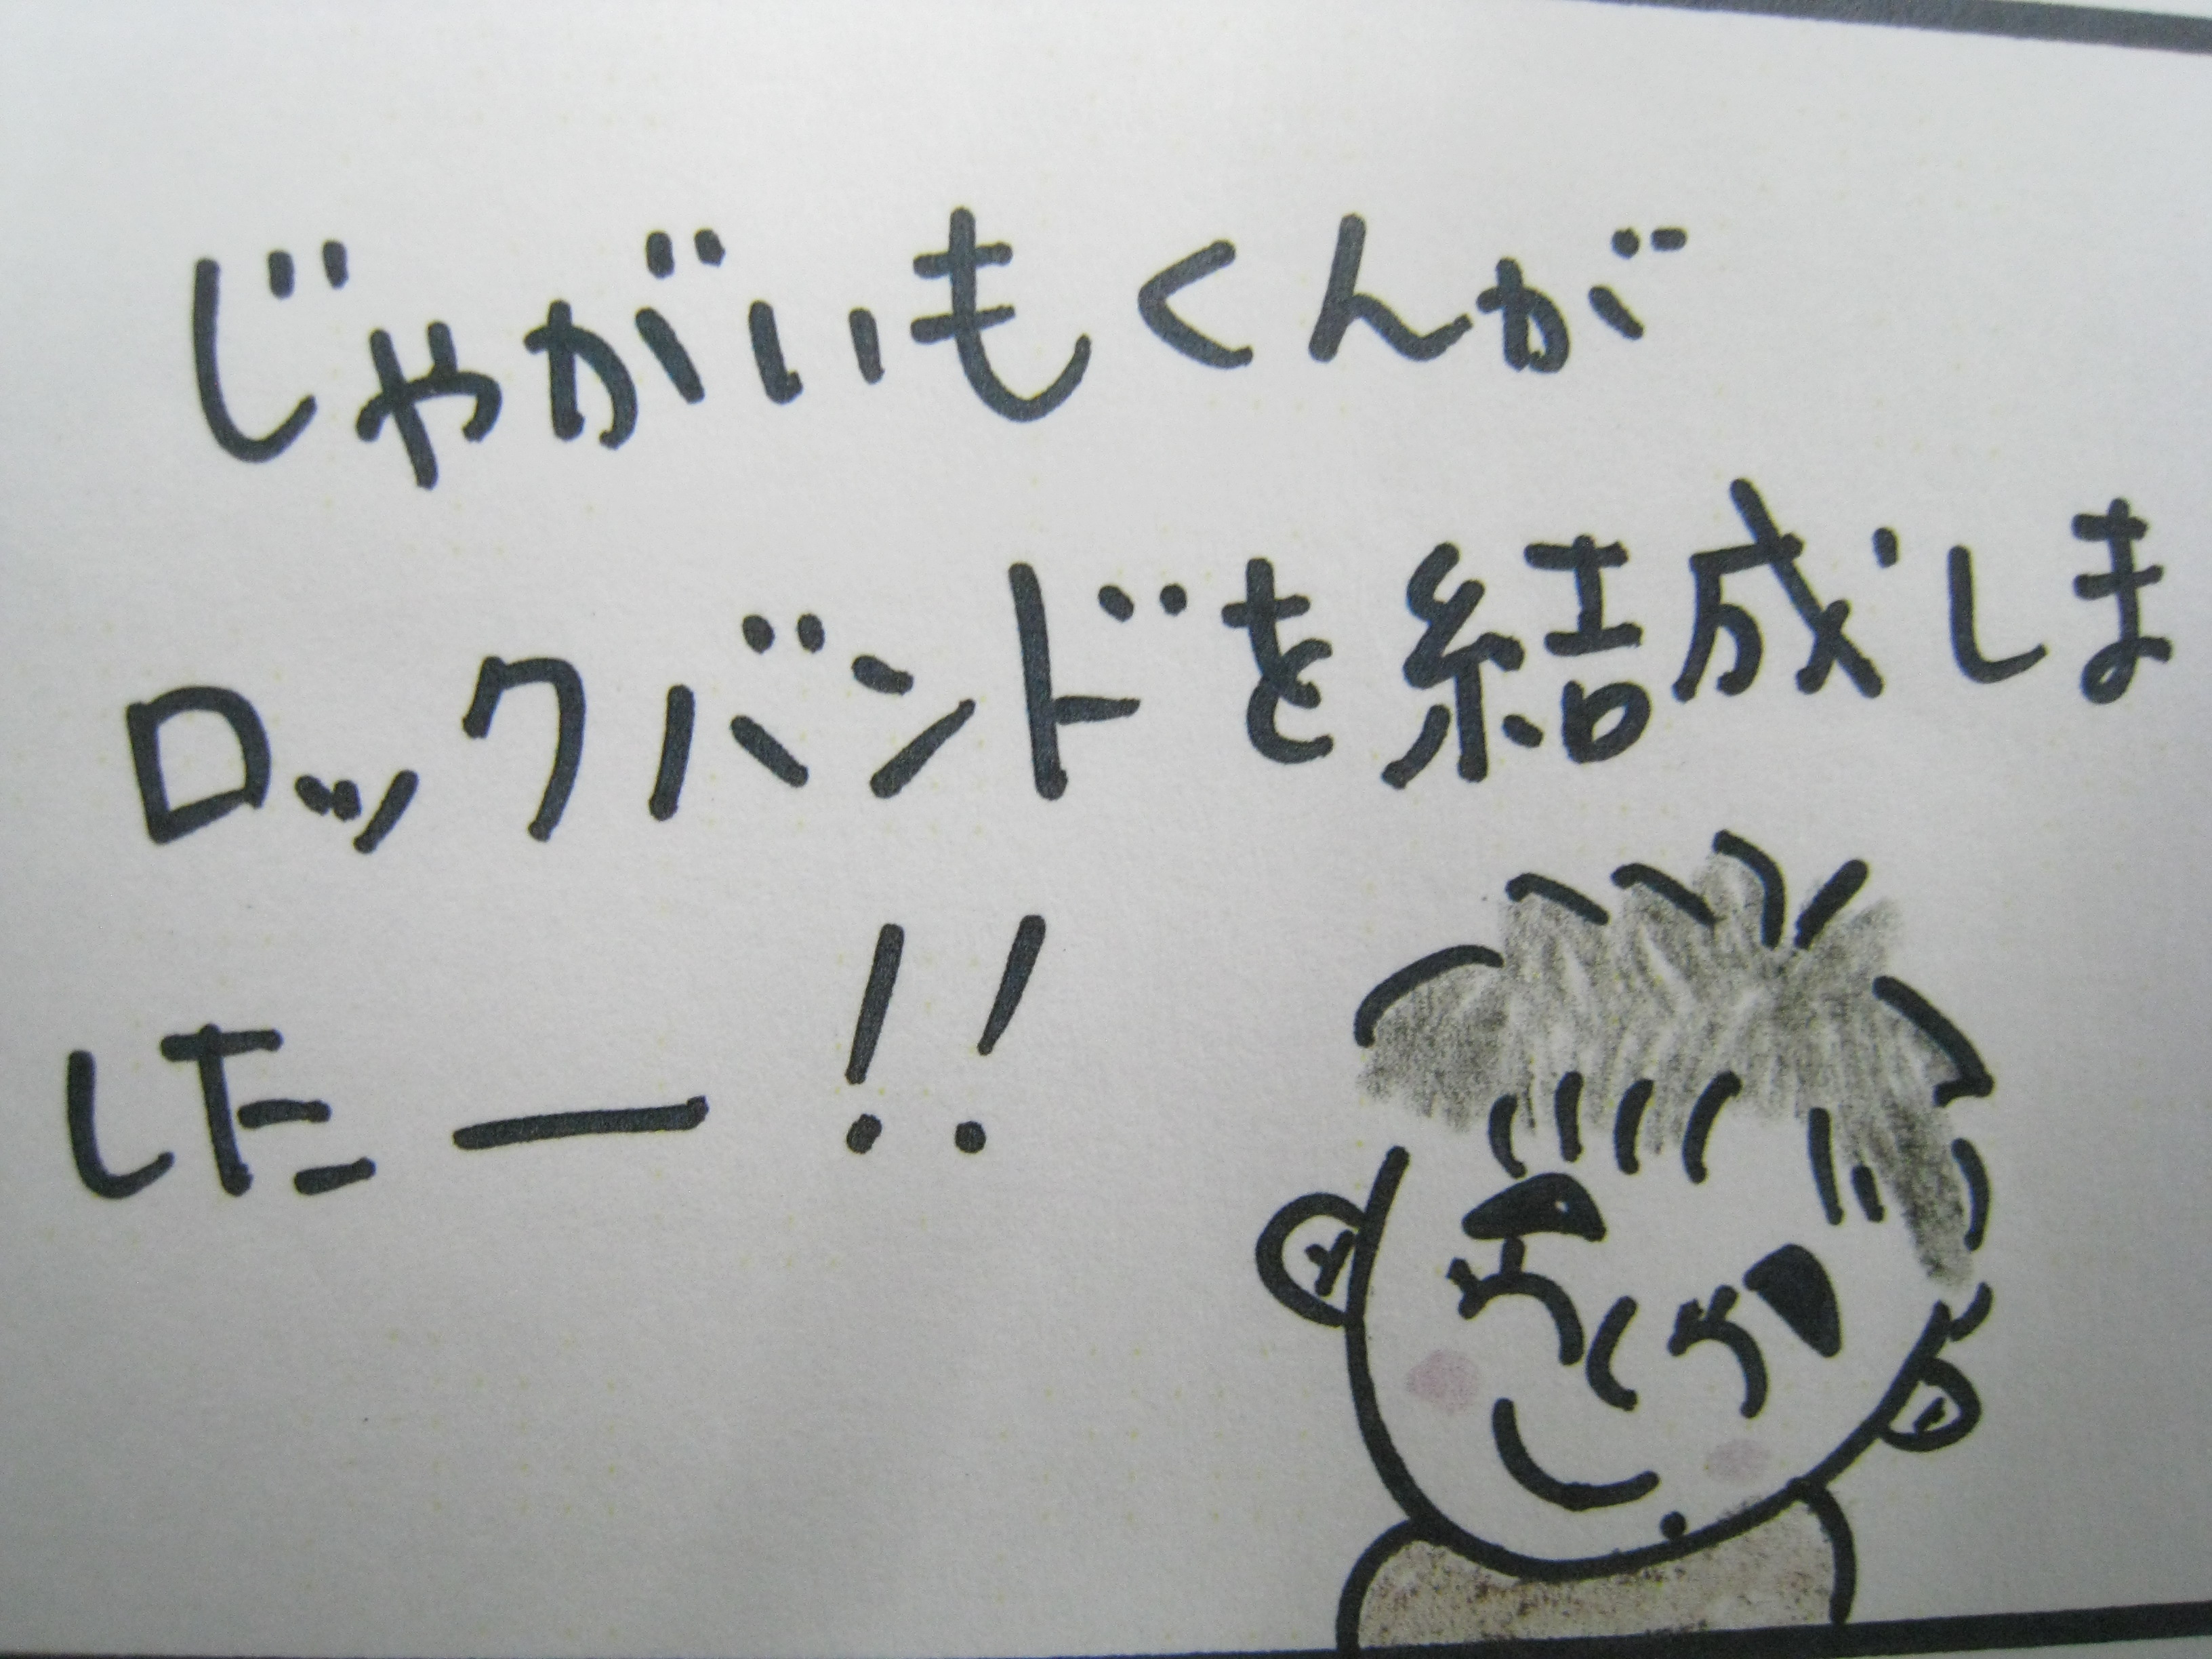 じゃがいもくんが
ロックバンドを結成しま
したー!!